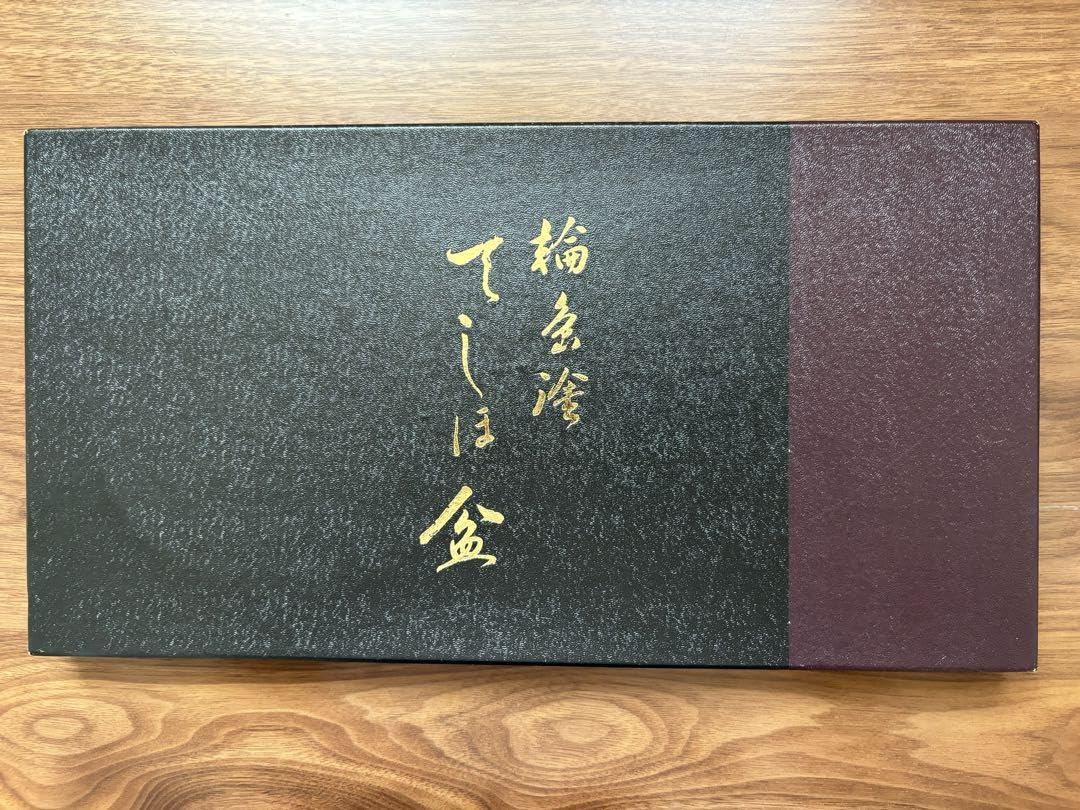 輪島塗
てしほ盆